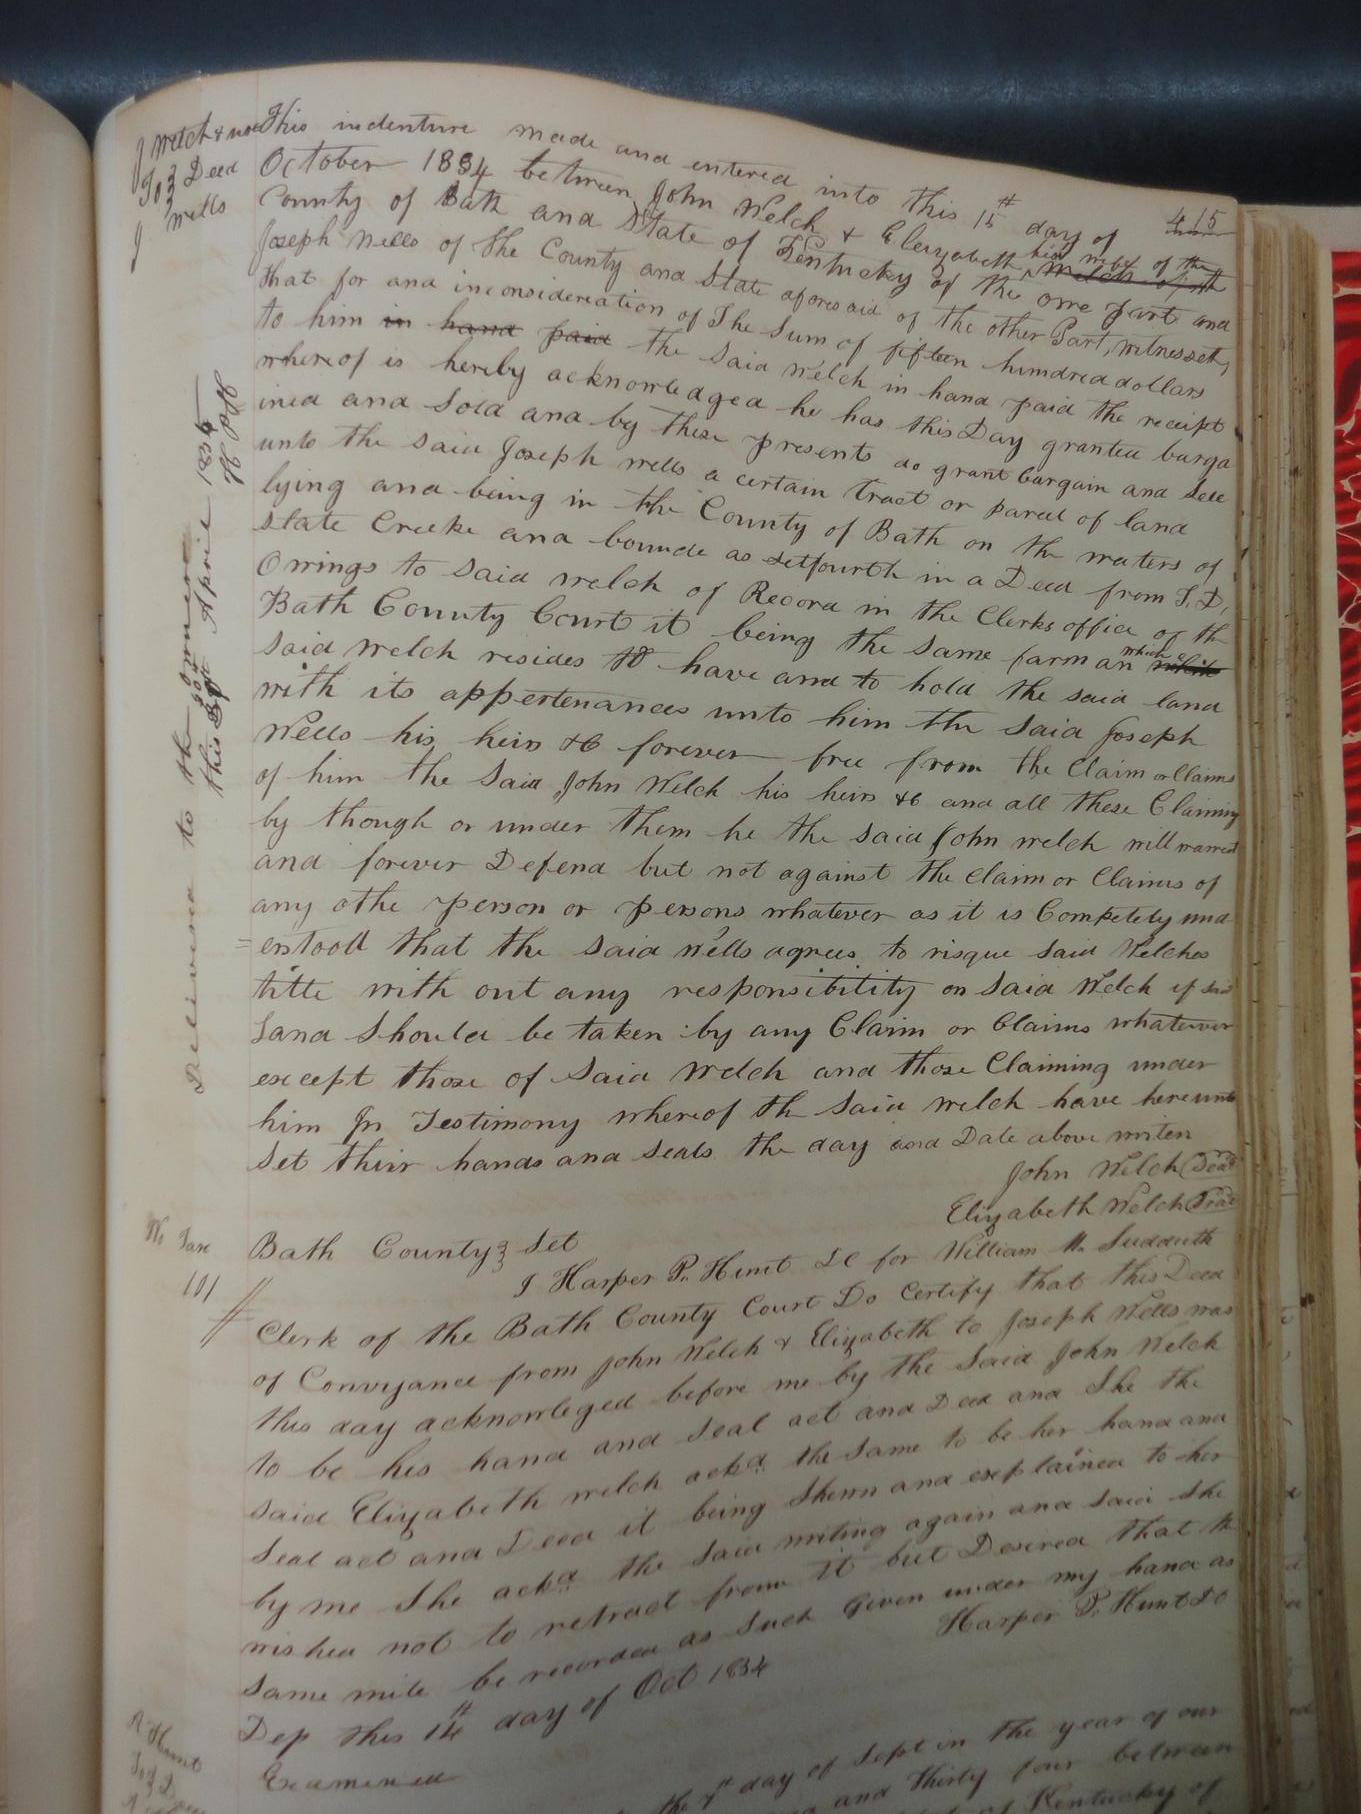 415
J Welch & wife
To } Deed
J Wells
This indenture made and entered into this 15th day of
October 1834 between John Welch & Elizabeth his wife of the Welch of th
County of Bath and State of Kentucky of the one part and
Joseph Wells of the County and State aforesaid of the other Part, witnesseth,
that for and inconsideration of The Sum of fifteen hundred dollars
to him in hand paid the said Welch in hand paid the receipt
whereof is hereby acknowledged he has this Day granted barga
ined and Sold and by these presents do grant bargain and Sell
unto the said Joseph wells a certain tract or parcel of land
lying and being in the County of Bath on the waters of
State Creeke and bounde as setfourth in a Deed from T. D.
Owings to said welch of Record in the Clerks office of th
Bath County Court it being the same farm on which
said welch resides to have and to hold the said land
with its appertenances unto him the said Joseph
Wells his heirs &c forever free from the Claim or Claims
of him the said John Welch his heirs &c and all these Claiming
by though or under them he the said John welch will warrant
and forever Defend but not against the Claim or Claims of
any othe person or persons whatever as it is Competely und
=erstood that the said Wells agrees to risque said Welches
title with out any responsibility on said Welch if said
Land Should be taken by any Claim or Claims whatever
except those of said Welch and those Claiming under
him In Testimony whereof th said welch have hereunto
Set their hands and seals the day and Date above writen
John Welch Seal
Elizabeth Welch Seal
Delivered to th
this April 1835
Bath County } Set
I Harper P. Hunt DC for William M. Sudduth
Clerk of the Bath County Court Do Certify that this Deed
of Conveyance from John Welch & Elizabeth to Joseph Wells was
this day acknowleged before me by the Said John Welch
to be his hand and seal act and Deed and She the
said Elizabeth welch ackd the same to be her hand and
seal act and Deed it being Shewn and explained to her
by me She ackd the said writing again and said she
wished not to retract from it but Desired that th
same mite be recorded as such Given under my hand as
Dep this 14th day of Oct 1834
Harper P. Hunt DC
Examined
101
the 7th day of Sept in the year of our
and Thirty four between
of Kentucky of
R Hunt